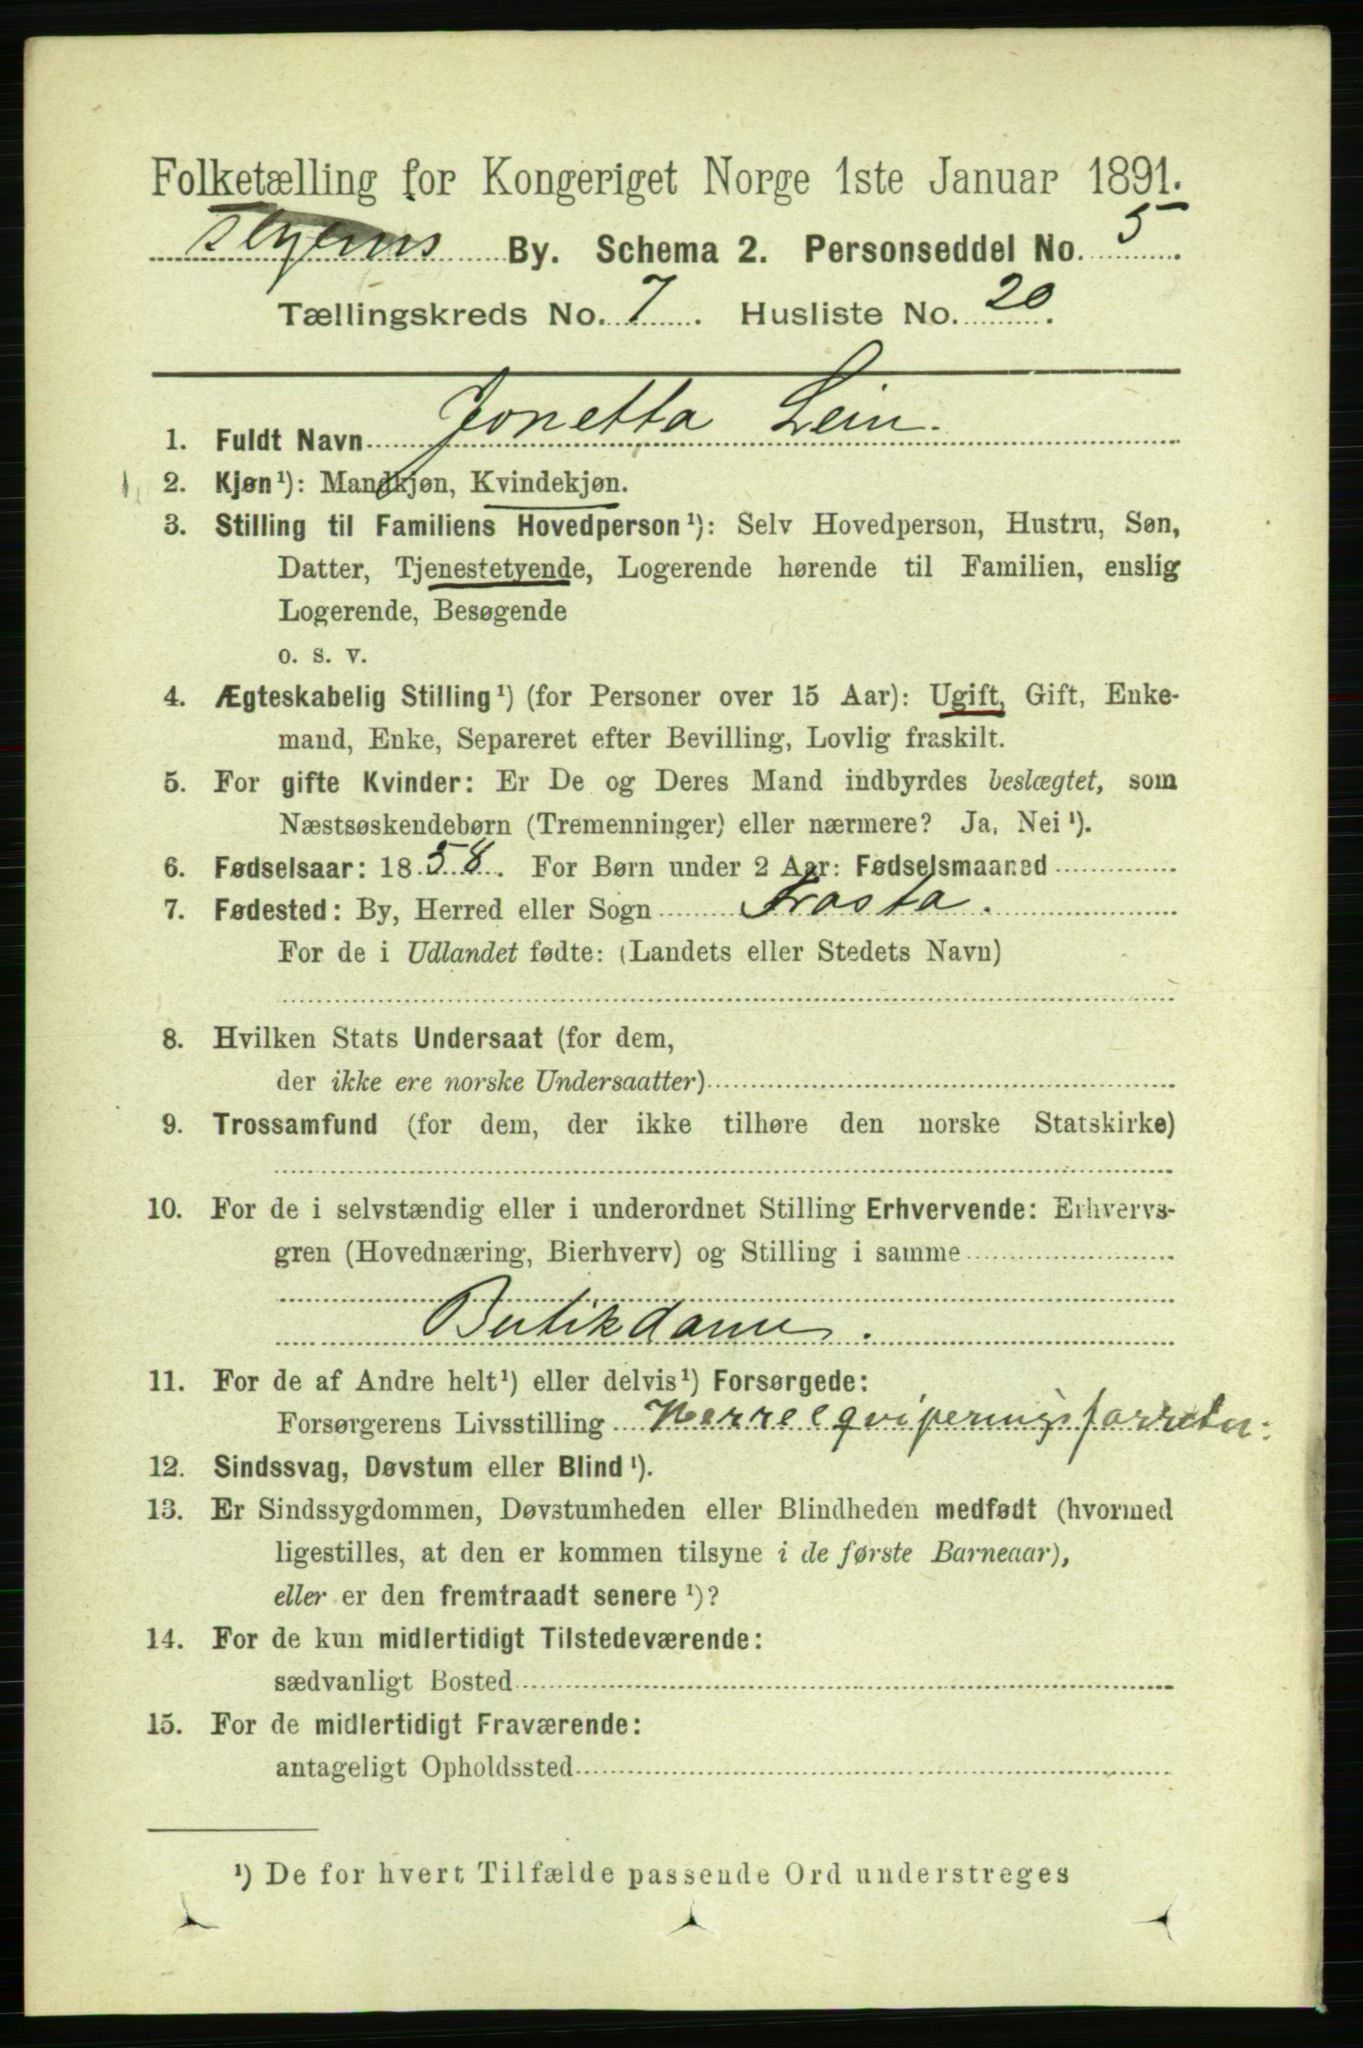 Folketælling for Kongeriget Norge 1ste Januar 1891.
By. Schema 2. Personseddel No. 5
Tællingskreds No. 7. Husliste No. 20.
1. Fuldt Navn Jonetta Lein.
2. Kjøn¹): Mandkjøn, Kvindekjøn.
3. Stilling til Familiens Hovedperson¹): Selv Hovedperson, Hustru, Søn,
Datter, Tjenestetyende, Logerende hørende til Familien, enslig
Logerende, Besøgende
o. s. v.
4. Ægteskabelig Stilling¹) (for Personer over 15 Aar): Ugift, Gift, Enke-
mand, Enke, Separeret efter Bevilling, Lovlig fraskilt.
5. For gifte Kvinder: Er De og Deres Mand indbyrdes beslægtet, som
Næstsøskendebørn (Tremenninger) eller nærmere? Ja, Nei¹).
6. Fødselsaar: 1858. For Børn under 2 Aar: Fødselsmaaned
7. Fødested: By, Herred eller Sogn Frosta.
For de i Udlandet fødte: (Landets eller Stedets Navn)
8. Hvilken Stats Undersaat (for dem,
der ikke ere norske Undersaatter)
9. Trossamfund (for dem, der ikke tilhøre den norske Statskirke)
10. For de i selvstændig eller i underordnet Stilling Erhvervende: Erhvervs-
gren (Hovednæring, Bierhverv) og Stilling i samme
Butikdame.
11. For de af Andre helt¹) eller delvis¹) Forsørgede:
Forsørgerens Livsstilling Herreeqviperingsforretn:
12. Sindssvag, Døvstum eller Blind¹).
13. Er Sindssygdommen, Døvstumheden eller Blindheden medfødt (hvormed
ligestilles, at den er kommen tilsyne i de første Barneaar),
eller er den fremtraadt senere¹)?
14. For de kun midlertidigt Tilstedeværende:
sædvanligt Bosted
15. For de midlertidigt Fraværende:
antageligt Opholdssted
¹) De for hvert Tilfælde passende Ord understreges